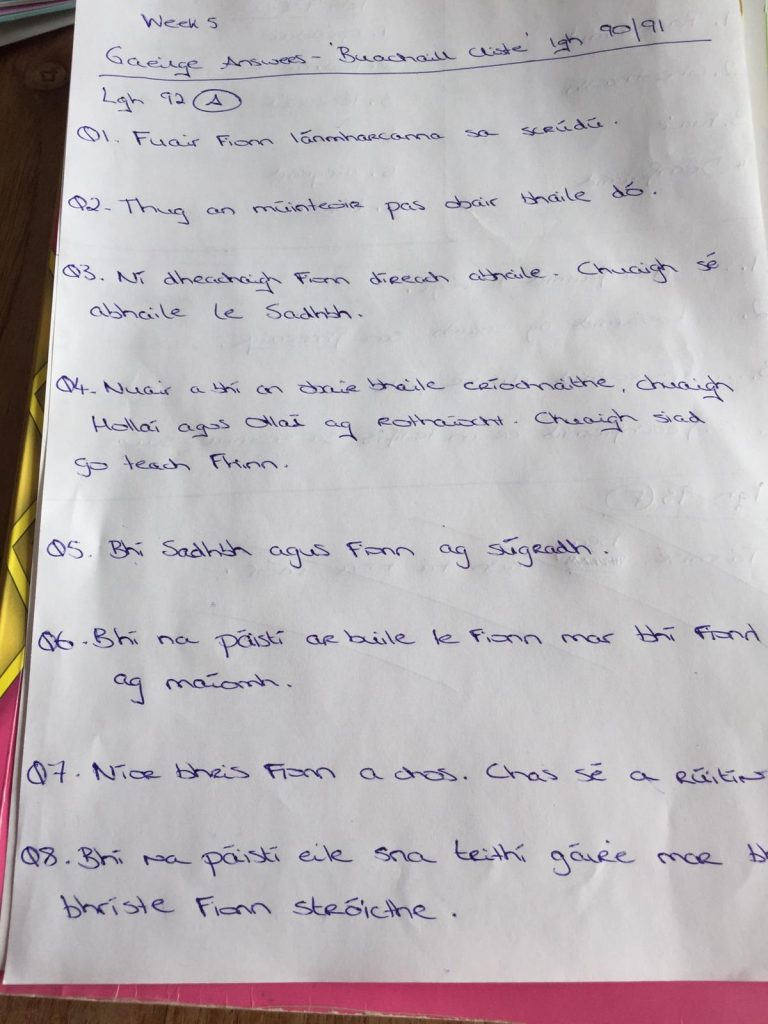 Week 5
Gaeilge Answers - 'Buachaill Cliste' lgh 90/91
Lgh 92 A
Q1. Fuair Fionn lánmharcanna sa scrúdú.
Q2. Thug an múinteoir pas obair bhaile dó.
Q3. Ní dheachaigh Fionn díreach abhaile. Chuaigh sé
abhaile le Sadhbh.
Q4. Nuair a bhí an obair bhaile críochnaithe, chuaigh
Hollaí agus Ollaí ag rothaíocht. Chuaigh siad
go teach Fhinn.
Q5. Bhí Sadhbh agus Fionn ag súgradh.
Q6. Bhí na páistí ar buile le Fionn mar bhí Fionn
ag maíomh.
Q7. Níor bhris Fionn a chos. Chas sé a rúitín
Q8. Bhí na páistí eile sna trithí gáire mar bh
bhríste Fionn stróicthe.